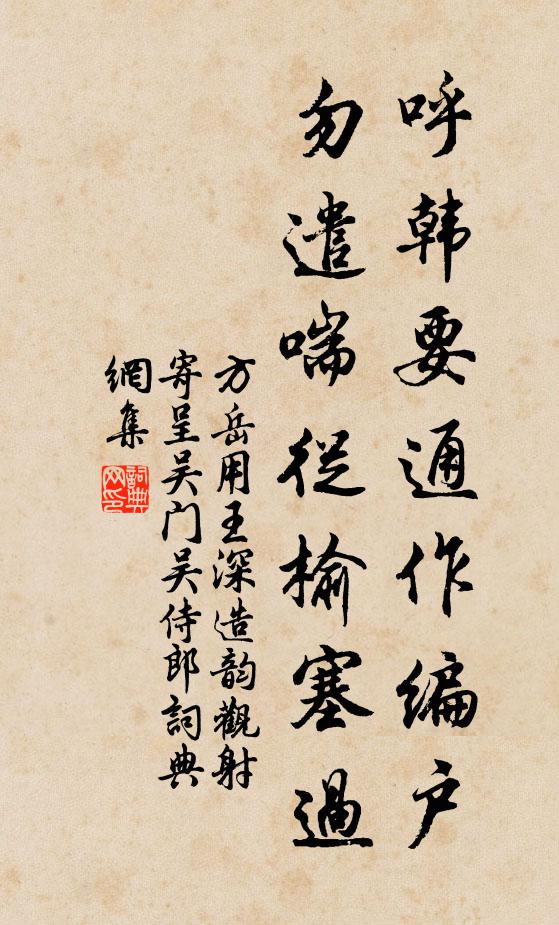 呼韩要通作编户
勿遣喘從榆塞過
方岳用王深造韵觀射
寄呈吴门吴侍郎詞典
網集
詞典网印